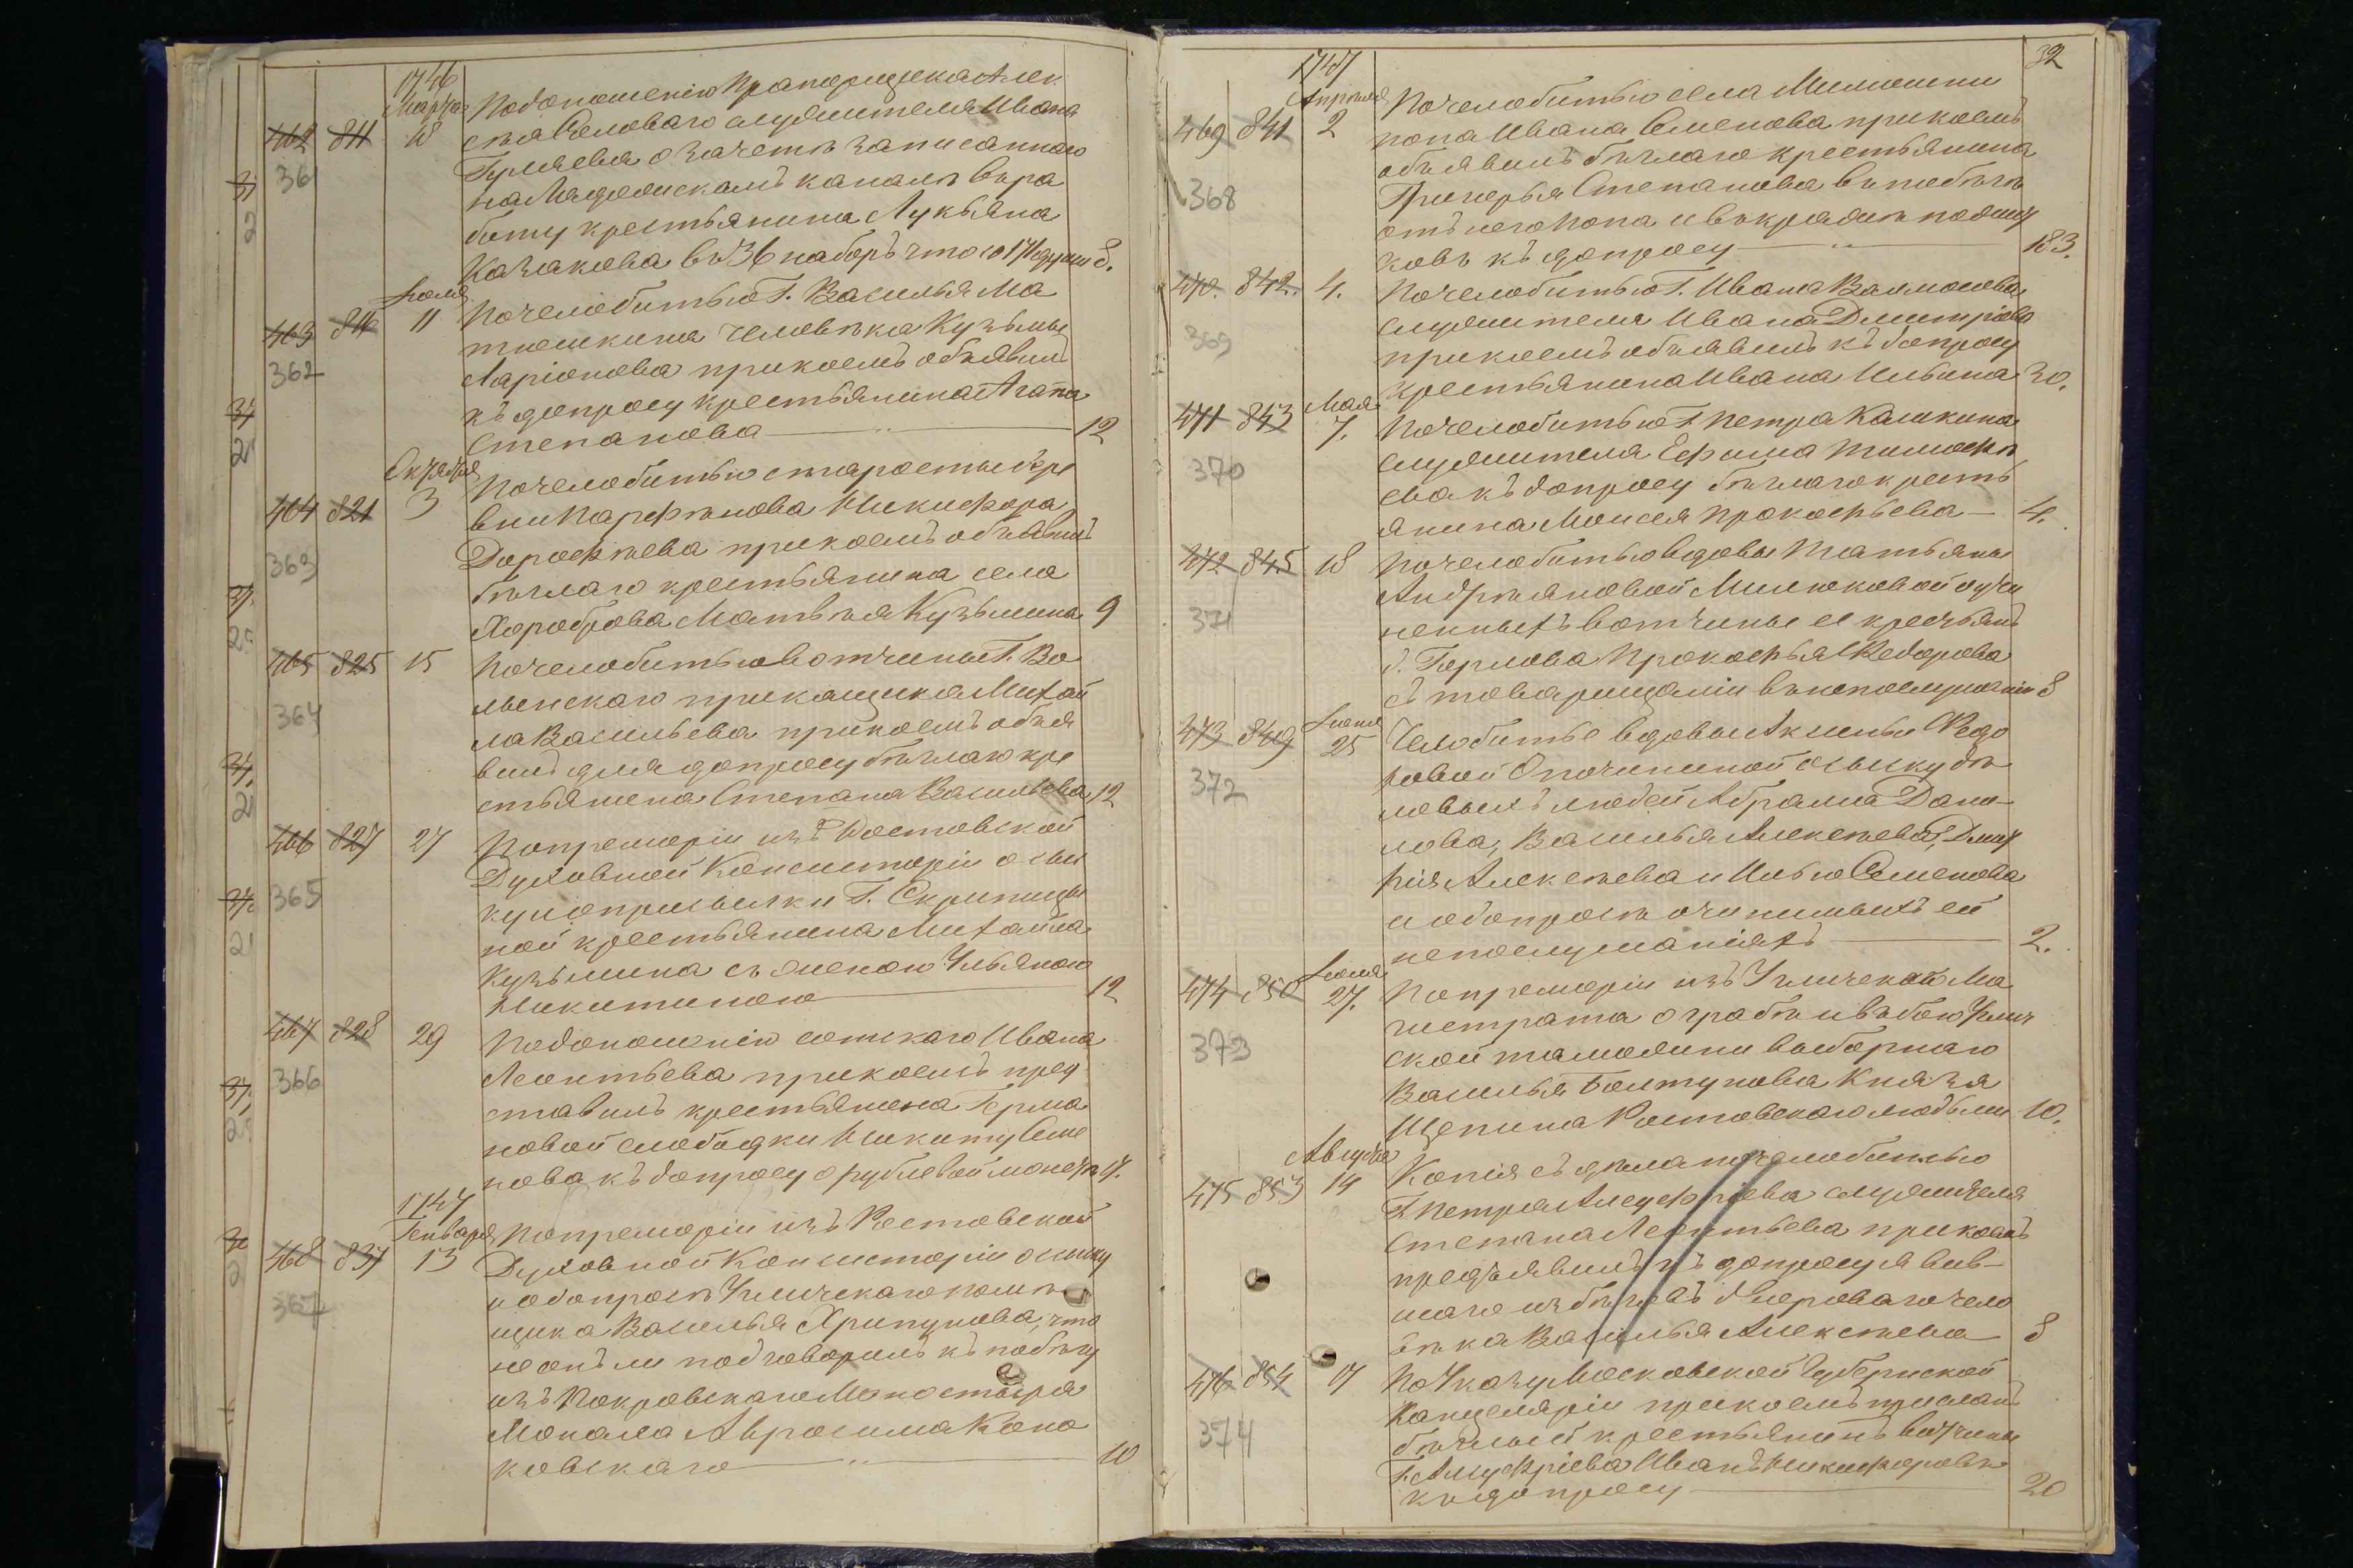 1746
Марта
462 811 18 По доношению Прапорщика Алек
361
служителя Ивана
Гуляева о зачете записаннаго
на Ладожскомъ каналѣ въ ра
боту крестьянина Лукьяна
Казакова въ 736 наборъ что о 171 души 8.
Июля
463 816 11 По челобитью Г. Василья Ма
362
тюшкина человѣка Кузьмы
Ларіонова при коемъ объявилъ
къ допросу крестьянина Агапа
Степанова 12
Октября
464 821 3 По челобитью старосты дере
363
вни Парфѣнова Никифора
Дорофѣева при коемъ объявилъ
бѣглаго крестьянина села
Хороброва Матвѣя Кузьмина 9
465 825 15 По челобитью вотчины Г. Во
364
лынскаго прикащика Михай
ла Васильева при коемъ объя
вилъ для допросу бѣглаго кре
стьянина Степана Васильева 12
466 827 27 По промеморіи изъ Ростовской
365
Духовной Консисторіи о сы
ку и о присылки Г. Скрипицы
ной крестьянина Михайла
Кузьмина съ женою Ульяною
Никитиною 12
467 828 29 По доношенію сотскаго Ивана
366
Леонтьева при коемъ пред
ставилъ крестьянина Герма
новой слободки Никиту Семе
нова къ допросу о рублевой монетѣ 17.
1747
Генваря
468 837 13 По промеморіи изъ Ростовской
367
Духовной Консисторіи о сыску
и о допросѣ Угличскаго помѣ
щика Василья Хрипунова, что
не онъ ли подговорилъ къ побѣгу
изъ Покровскаго Монастыря
Монаха Авросима Коно
ковскаго 10
32
1747
Апрѣля
469 841 2 По челобитью села
368
попа Ивана Семенова при коемъ
объявилъ бѣглаго крестьянина
Григорья Степанова въ побѣгѣ
отъ него попа и въ кражѣ
ковъ къ допросу 183.
470. 842. 4. По челобитью Г. Ивана
369
служителя Ивана Дмитріева
при коемъ объявилъ къ допросу
крестьянина Ивана Ильина 30.
Мая
471 843 7. По челобитью Г. Петра Кашкина
370
служителя Ефима Тимофѣ
ева къ допросу бѣглаго кресть
янина Моисея Прокофьева 4.
472 845 18 По челобитью вдовы Татьяны
371
Андрѣяновой Милюковой о учи
ненныхъ вотчины ее крестьянъ
д. Горлова Прокофья Федорова
съ товарищами въ непослушаніи 8
Июня
473 849 25 Челобитье вдовы Аксиньи Федо
372
ровой Опочининой о сыску дво
ровыхъ людей Абрама Дани
лова, Василья Алексѣева, Дмит
рія Алексѣева и Илью Семенова
и о допросѣ о чинимыхъ ей
непослушаніяхъ 2.
Июля
474 850 27. По промеморіи изъ Угличскаго Ма
373
гистрата о грабѣ и въ бою Углич
ской таможни выборнаго
Василья Болтунова Князя
Щепина Ростовскаго людьми 10.
Августа
475 853 14 Копія съ дѣла по челобитью
Г. Петра Алсуфьева служителя
Степана Леонтьева при коемъ
предъявилъ къ допросу явив-
шаго изъ бѣговъ двороваго чело
вѣка Василья Алексѣева 8
476 854 17 По Указу Московской Губернской
374
Канцеляріи при коемъ присланъ
бѣглый крестьянинъ вотчины
Г. Алсуфріева Иванъ Никифоровъ
къ допросу 20